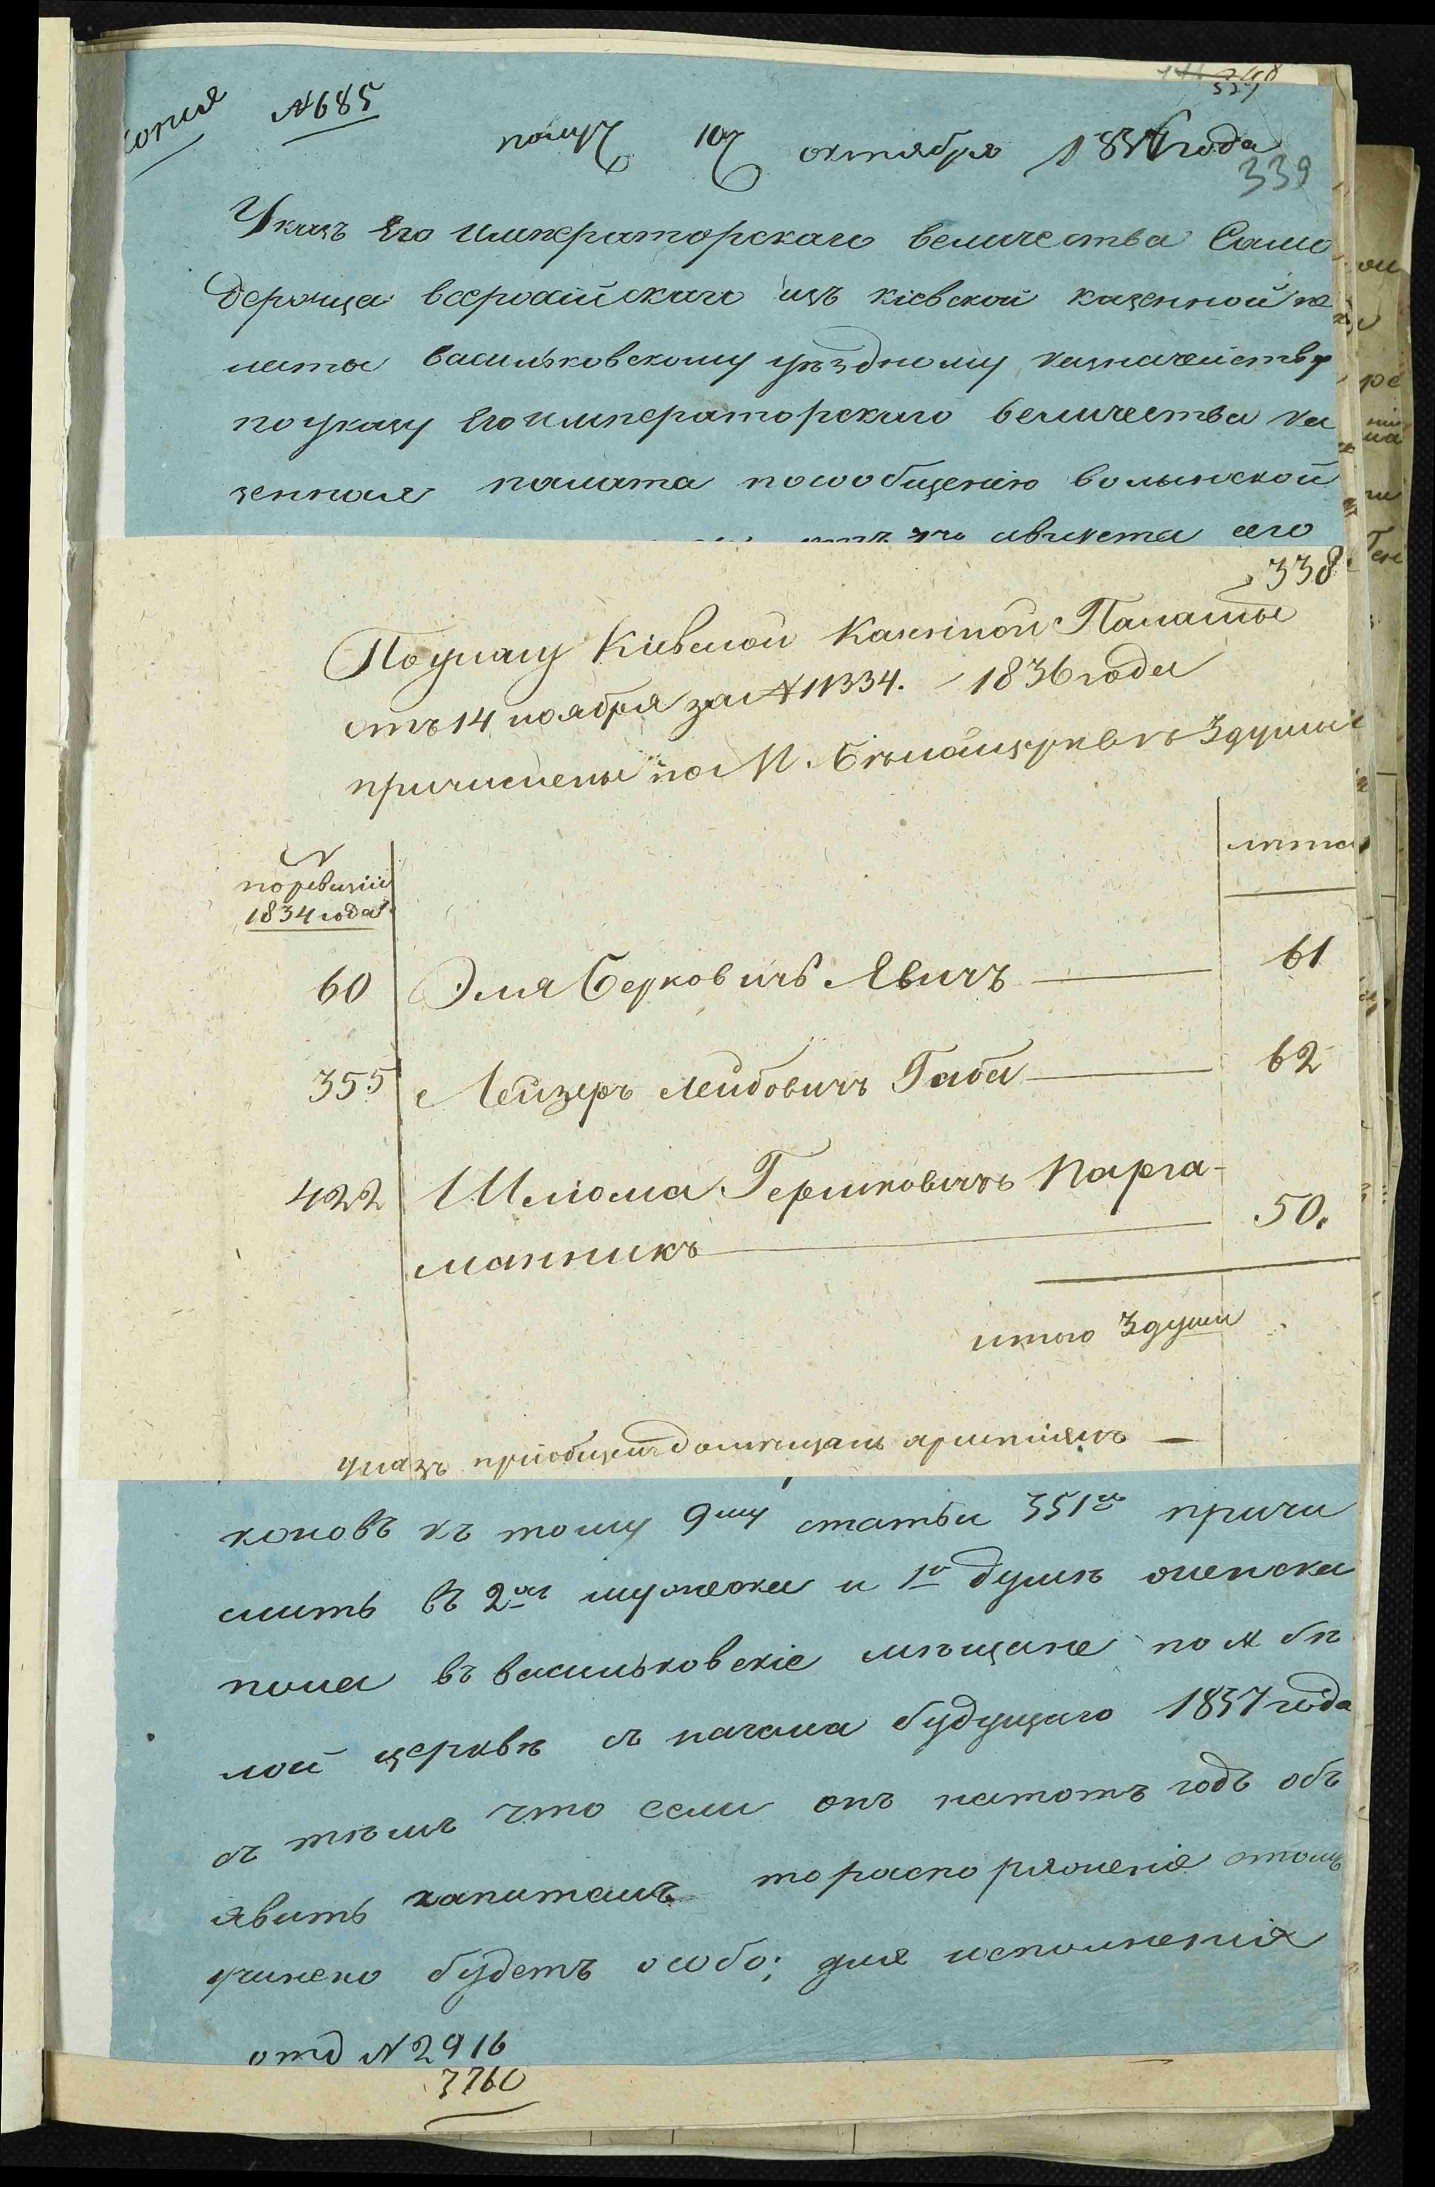 копия №685
получ 10 октября 1836 года
339
Указъ Его императорскаго величества Само
держца всеросийскаго изъ кіевской казенной па
латы васильковскому уѣздному казначейству
по указу Его императорскаго величества ка
зенная палата по сообщенію волынской
августа сего
338
По указу Кіевской Казенной Палаты
отъ 14 ноября за №11334. 1836 года
причислены по М. Бѣлойцерквѣ 3 души
№
по ревизіи
1834 года
лѣта
60 Эля Берковичъ Явичъ 61
355 Лейзеръ Лейбовичъ Габа 62
422 Шліома Гершковичъ Парга-
манникъ 50.
итого 3 души
указъ приобщенъ
коновъ къ тому 9му статьи 351й причи
слить въ 2хъ мужеска и 1й душѣ женска
пола въ васильковскіе мѣщане по м бѣ
лой церквѣ съ начала будущаго 1837 года
съ тѣмъ что если онъ на тотъ годъ объ
явитъ капиталъ то распоряженіе о томъ
учинено будетъ особо; для исполненія
отд №2916
7760